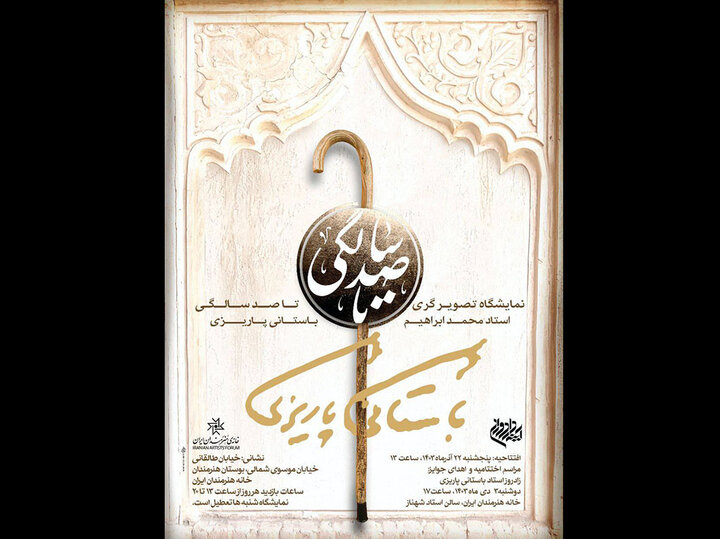 تا صد سالگی
نمایشگاه تصویرگری تا صد سالگی
استاد محمد ابراهیم باستانی پاریزی
باستانی پاریزی
افتتاحیه: پنجشنبه ۲۲ آذرماه ۱۴۰۳، ساعت ۱۳
مراسم اختتامیه و اهدای جوایز:
زادروز استاد باستانی پاریزی
دوشنبه ۳ دی ماه ۱۴۰۳، ساعت ۱۷
خانه هنرمندان ایران، سالن استاد شهناز
خانه‌ی هنرمندان ایران
IRANIAN ARTISTS FORUM
نشانی: خیابان طالقانی
خیابان موسوی شمالی، بوستان هنرمندان
خانه هنرمندان ایران
ساعات بازدید هر روز از ساعت ۱۳ تا ۲۰
نمایشگاه شنبه ها تعطیل است.